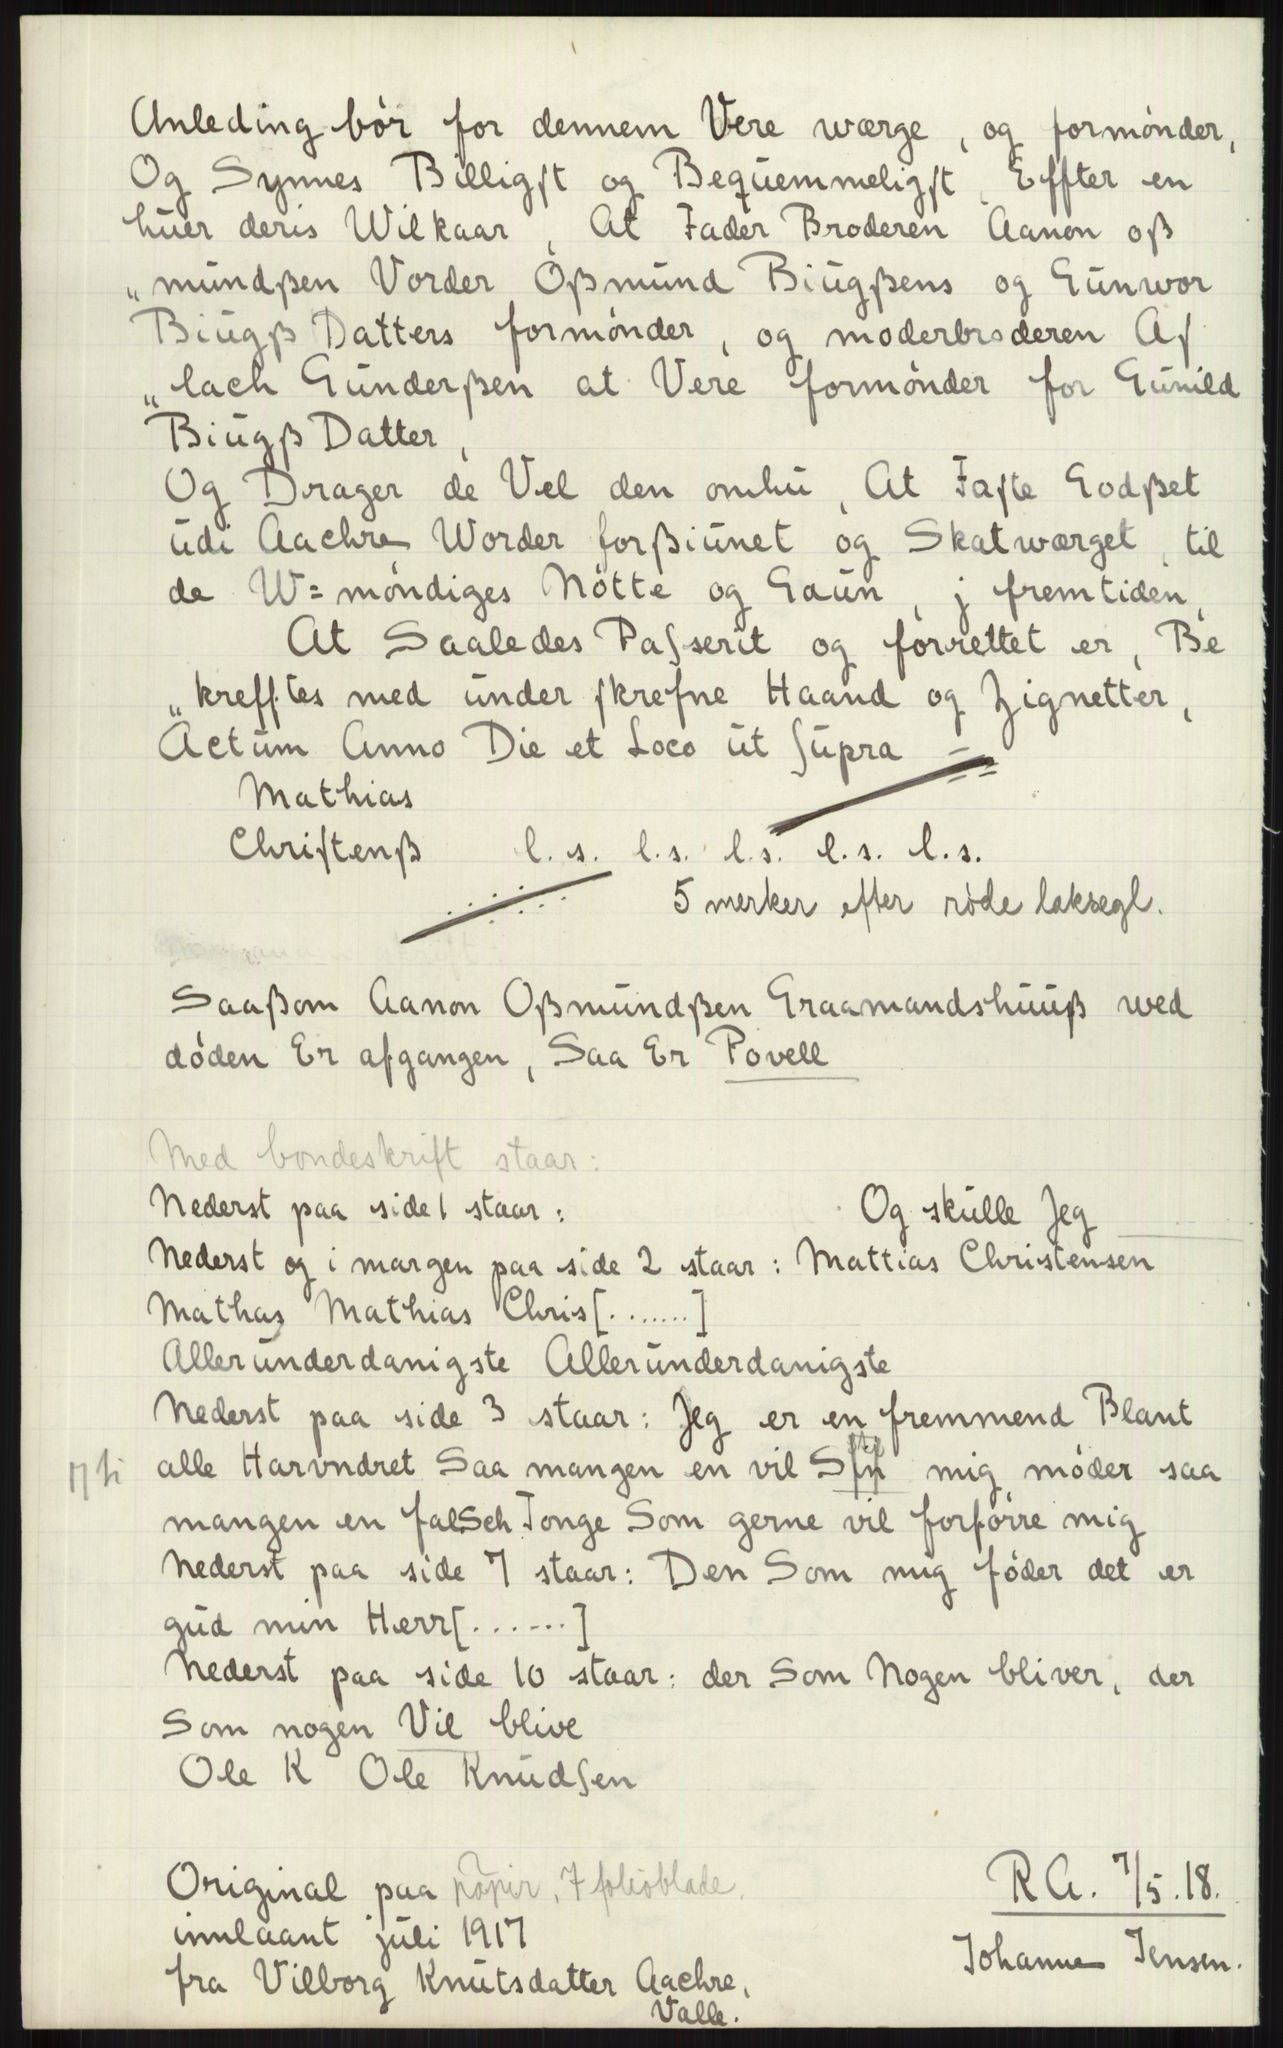 Anleding bör for dennem Vere wærge, og formönder,
Og Synnes Billigst og Bequemmeligst, Effter en
huer deris Wilkaar, At Fader Broderen Aanon oß
„mundßen Vorder Oßmund Biugßens og Gunwor
Biugß Datters formönder, og moderbroderen As
„lach Gunderßen at Vere formönder for Gunild
Biugß Datter,
Og Drager de Vel den omhu, At Faste Godßet
udi Aachre Worder forßiunet og Skatwærget, til
de W= möndiges Nötte og Gaun, j fremtiden,
At Saaledes Passerit og forrettet er, Be
„krefftes med under skrefne Haand og Zignetter,
Actum Anno Die et Loco ut supra
Mathias
Christenß l. s. l. s. l. s. l. s. l. s.
5 merker efter röde laksegl.
Saaßom Aanon Oßmundßen Graamandshuuß wed
döden Er afgangen, Saa Er Povell
Med bondeskrift staar:
Nederst paa side 1 staar: Og skulle Jeg
Nederst og i margen paa side 2 staar: Mattias Christensen
Mathas Mathias Chris[.......]
Allerunderdanigste Allerunderdanigste
Nederst paa side 3 staar: Jeg er en fremmend Blant
alle Harvndret Saa mangen en vil mig möder saa
mangen en falSch Tonge Som gerne vil forförre mig
Nederst paa side 7 staar: Den Som mig föder det er
gud min Herr[......]
Nederst paa side 10 staar: der Som Nogen bliver, der
Som nogen Vil blive
Ole K Ole Knudsen
Original paa papir, 7 folioblade.
innlaant juli 1917
fra Vilborg Knutsdatter Aachre,
Valle.
R A. 7/5.18.
Johanne Jensen.